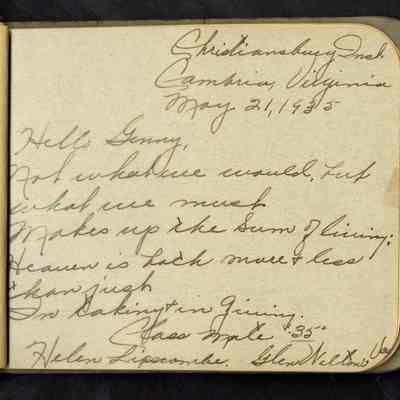 Christiansburg Inst.
Cambria, Virginia
May 21, 1935
Hello Genny,
Not what we would, but
what we must
Makes up the sum of living:
Heaven is both more & less
than just
In taking & in giving.
Class mate "35"
Helen Lipscombe. Glen Wilton, Va